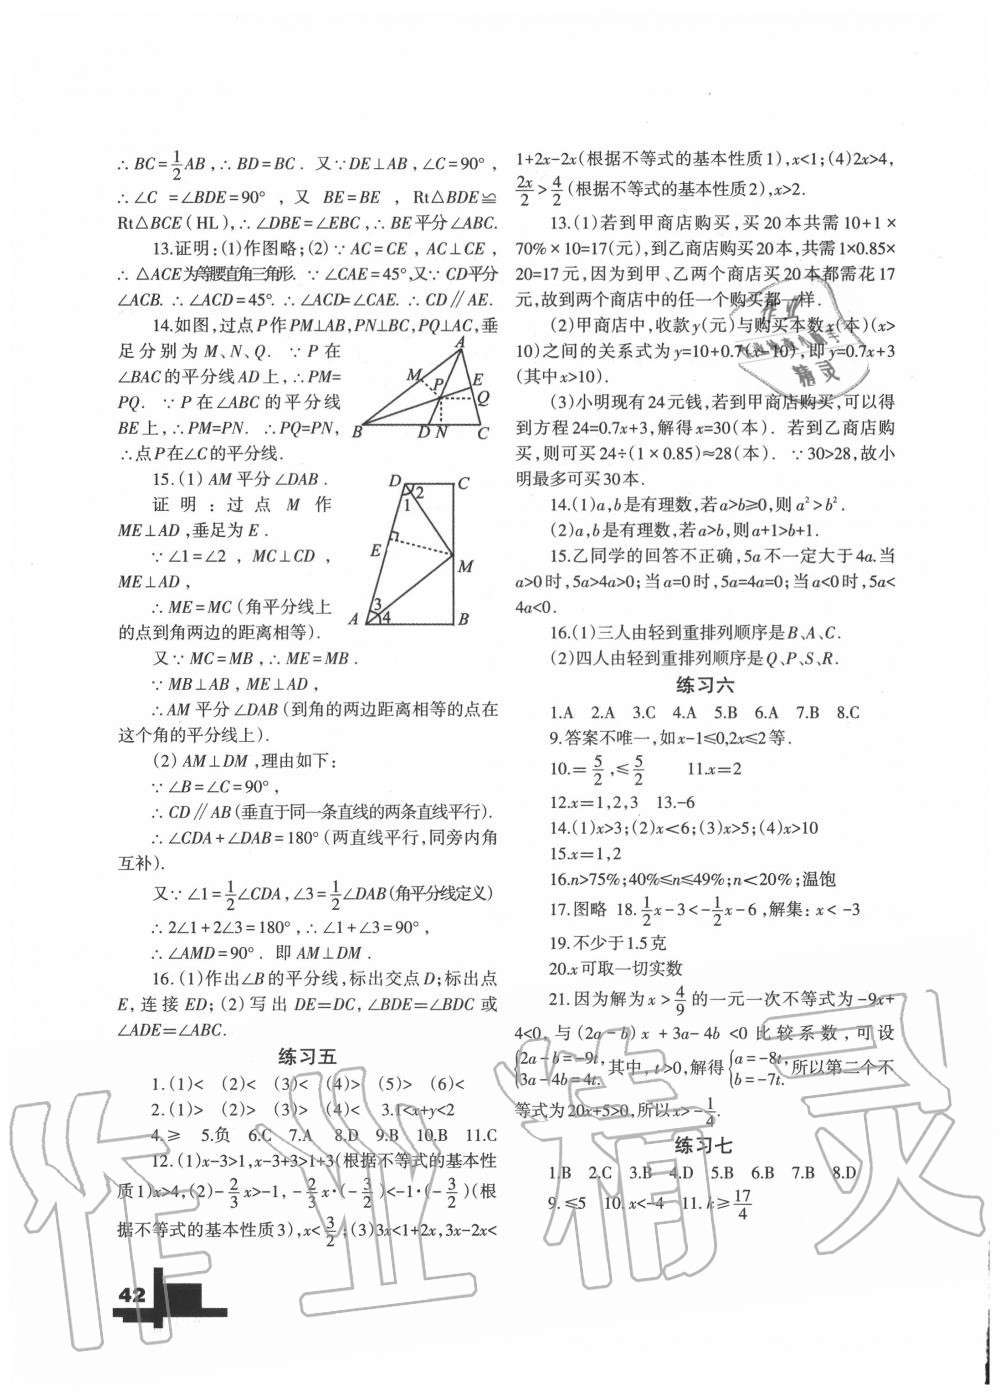 ∴ BC=1/2AB,∴ BD=BC. 又∵DE⊥AB,∠C=90°,
∴∠C=∠BDE=90°,又 BE=BE,Rt△BDE≌
Rt△BCE(HL),∴∠DBE=∠EBC,∴BE平分∠ABC.
13.证明:(1)作图略;(2)∵AC=CE,AC⊥CE,
∴△ACE为等腰直角三角形. ∵∠CAE=45°,又∵CD平分
∠ACB.∴∠ACD=45°.∴∠ACD=∠CAE.∴CD∥AE.
14.如图,过点P作PM⊥AB,PN⊥BC,PQ⊥AC,垂
足分别为M、N、Q. ∵P在
∠BAC的平分线AD上,∴PM=
PQ. ∵P在∠ABC的平分线
BE上,∴PM=PN. ∴PQ=PN,
∴点P在∠C的平分线.
A
M
P
E
Q
B
D
N
C
15.(1)AM平分∠DAB.
证明:过点M作
ME⊥AD,垂足为E.
∵∠1=∠2,MC⊥CD,
ME⊥AD,
∴ME=MC(角平分线上
的点到角两边的距离相等).
D
C
1
2
E
M
3
4
A
B
又∵MC=MB,∴ME=MB.
∵MB⊥AB,ME⊥AD,
∴AM平分∠DAB(到角的两边距离相等的点在
这个角的平分线上).
(2)AM⊥DM,理由如下:
∵∠B=∠C=90°,
∴CD∥AB(垂直于同一条直线的两条直线平行).
∴∠CDA+∠DAB=180°(两直线平行,同旁内角
互补).
又∵∠1=1/2∠CDA,∠3=1/2∠DAB(角平分线定义)
∴2∠1+2∠3=180°,∴∠1+∠3=90°,
∴∠AMD=90°. 即AM⊥DM.
16.(1)作出∠B的平分线,标出交点D;标出点
E,连接ED;(2)写出DE=DC,∠BDE=∠BDC或
∠ADE=∠ABC.
练习五
1.(1)< (2)< (3)< (4)> (5)> (6)<
2.(1)> (2)> (3)> (4)< 3.1<x+y<2
4.≥ 5.负 6.C 7.A 8.D 9.B 10.B 11.C
12.(1)x-3>1,x-3+3>1+3(根据不等式的基本性
质1)x>4,(2)-2/3x>-1,-2/3x·(-3/2)<-1·(-3/2)(根
据不等式的基本性质3),x<3/2;(3)3x<1+2x,3x-2x<
42
1+2x-2x(根据不等式的基本性质1),x<1;(4)2x>4,
2x/2>4/2(根据不等式的基本性质2),x>2.
13.(1)若到甲商店购买,买20本共需10+1×
70%×10=17(元),到乙商店购买20本,共需1×0.85×
20=17元,因为到甲、乙两个商店买20本都需花17
元,故到两个商店中的任一个购买都一样.
(2)甲商店中,收款y(元)与购买本数x(本)(x>
10)之间的关系式为y=10+0.7(x-10),即y=0.7x+3
(其中x>10).
(3)小明现有24元钱,若到甲商店购买,可以得
到方程24=0.7x+3,解得x=30(本). 若到乙商店购
买,则可买24÷(1×0.85)≈28(本). ∵30>28,故小
明最多可买30本.
14.(1)a,b是有理数,若a>b≥0,则a²>b².
(2)a,b是有理数,若a>b,则a+1>b+1.
15.乙同学的回答不正确,5a不一定大于4a.当
a>0时,5a>4a>0;当a=0时,5a=4a=0;当a<0时,5a<
4a<0.
16.(1)三人由轻到重排列顺序是B、A、C.
(2)四人由轻到重排列顺序是Q、P、S、R.
练习六
1.A 2.A 3.C 4.A 5.B 6.A 7.B 8.C
9.答案不唯一,如x-1≤0,2x≤2等.
10.=5/2,≤5/2 11.x=2
12.x=1,2,3 13.-6
14.(1)x>3;(2)x<6;(3)x>5;(4)x>10
15.x=1,2
16.n>75%;40%≤n≤49%;n<20%;温饱
17.图略 18.1/2x-3<-1/2x-6,解集:x<-3
19.不少于1.5克
20.x可取一切实数
21.因为解为x>4/9的一元一次不等式为-9x+
4<0,与(2a-b)x+3a-4b<0比较系数,可设
{2a-b=-9t, 3a-4b=4t. 其中,t>0,解得{a=-8t, b=-7t. 所以第二个不
等式为20x+5>0,所以x>-1/4.
练习七
1.B 2.C 3.B 4.D 5.B 6.B 7.B 8.D
9.≤5 10.x<-4 11.k≥17/4
作业
精灵
作业精灵